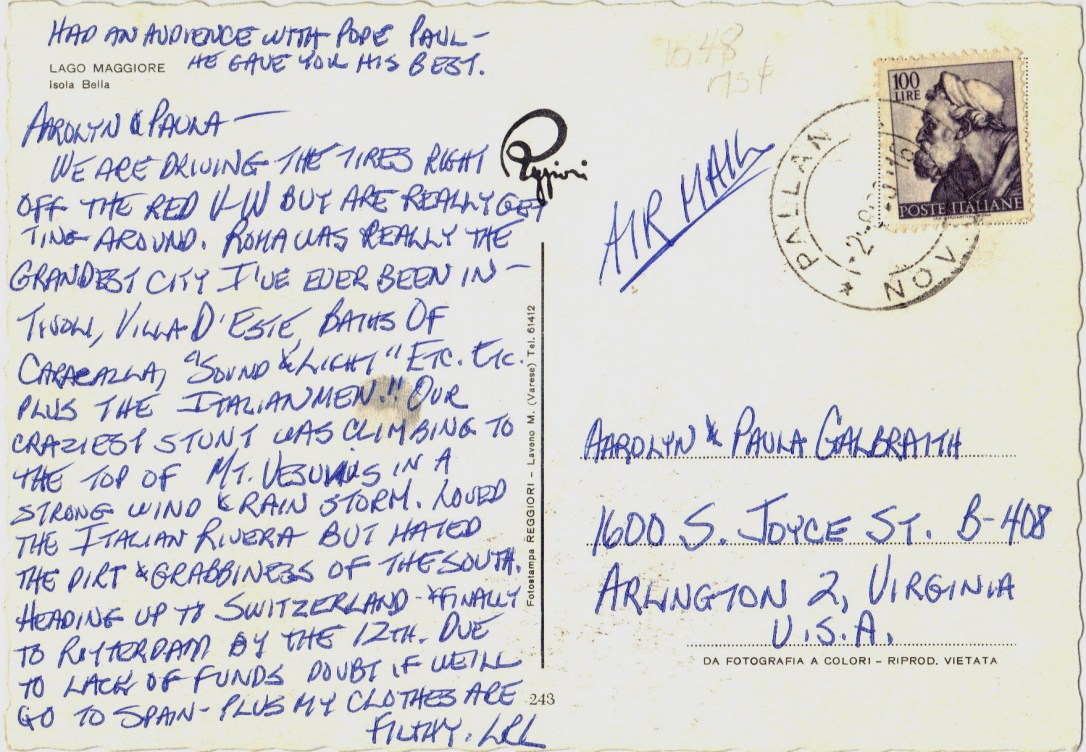 HAD AN AUDIENCE WITH POPE PAUL –
HE GAVE YOU HIS BEST.
LAGO MAGGIORE
Isola Bella
AAROLYN & PAULA —
WE ARE DRIVING THE TIRES RIGHT
OFF THE RED V-W BUT ARE REALLY GET
TING AROUND. ROMA WAS REALLY THE
GRANDEST CITY I'VE EVER BEEN IN –
TIVOLI, VILLA D'ESTE, BATHS OF
CARACALLA, "SOUND & LIGHT" ETC. ETC.
PLUS THE ITALIAN MEN!! OUR
CRAZIEST STUNT WAS CLIMBING TO
THE TOP OF MT. VESUVIUS IN A
STRONG WIND & RAIN STORM. LOVED
THE ITALIAN RIVERA BUT HATED
THE DIRT & GRABBINESS OF THE SOUTH.
HEADING UP TO SWITZERLAND - & FINALLY
TO ROTTERDAM BY THE 12TH. DUE
TO LACK OF FUNDS DOUBT IF WE'LL
GO TO SPAIN - PLUS MY CLOTHES ARE
FILTHY. LRL
Reggiori
Fotostampa REGGIORI - Laveno M. (Varese) Tel. 61412
243
1048
AIR MAIL
100
LIRE
POSTE ITALIANE
PALLAN
NOV
AAROLYN & PAULA GALBRAITH
1600 S. JOYCE ST. B-408
ARLINGTON 2, VIRGINIA
U.S.A.
DA FOTOGRAFIA A COLORI - RIPROD. VIETATA